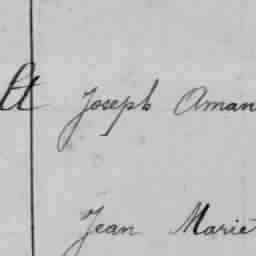 Joseph Aman
Jean Marie